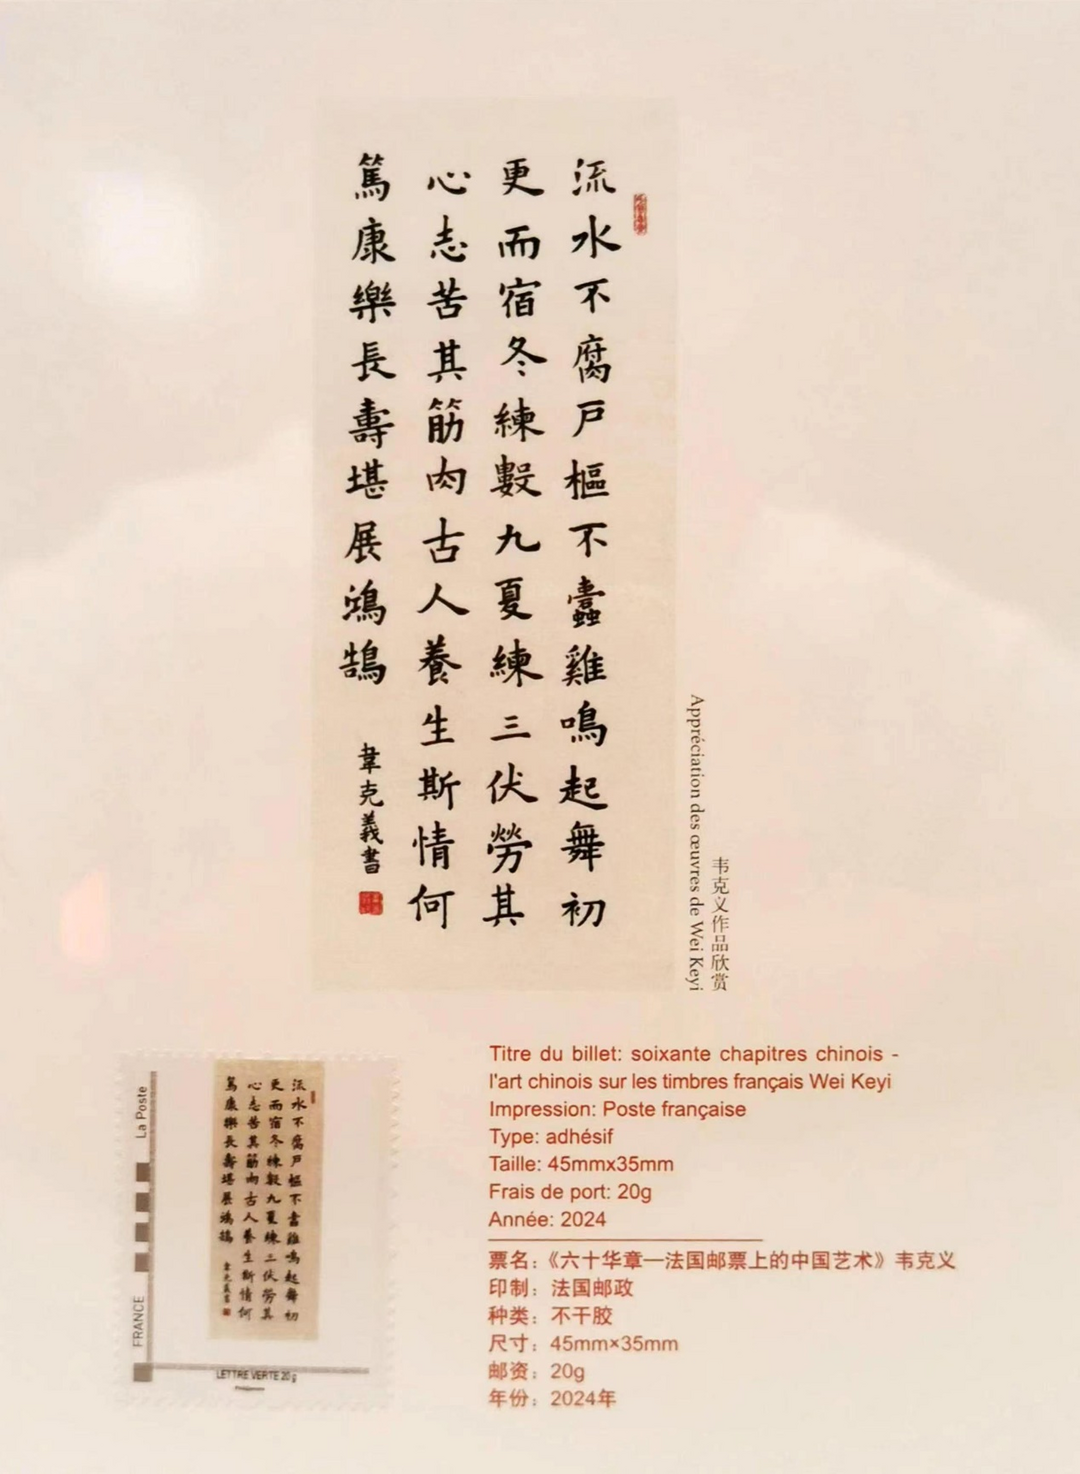 流水不腐戸樞不蠹雞鳴起舞初
更而宿冬練數九夏練三伏勞其
心志苦其筋肉古人養生斯情何
篤康樂長壽堪展鴻鵠
韋克義書
韦克义作品欣赏
Appréciation des œuvres de Wei Keyi
La Poste
FRANCE
流水不腐戸樞不蠹雞鳴起舞初
更而宿冬練數九夏練三伏勞其
心志苦其筋肉古人養生斯情何
篤康樂長壽堪展鴻鵠
韋克義書
LETTRE VERTE 20 g
Titre du billet: soixante chapitres chinois -
l'art chinois sur les timbres français Wei Keyi
Impression: Poste française
Type: adhésif
Taille: 45mmx35mm
Frais de port: 20g
Année: 2024
票名：《六十华章—法国邮票上的中国艺术》韦克义
印制：法国邮政
种类：不干胶
尺寸：45mm×35mm
邮资：20g
年份：2024年